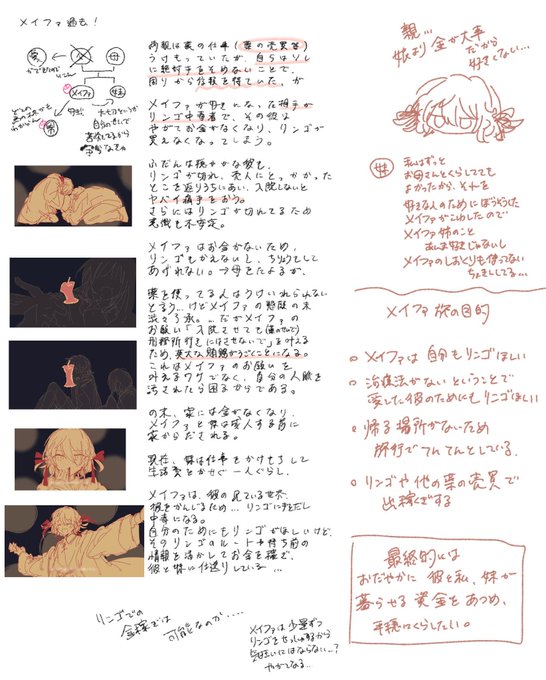 メイファ過去！
父
母
メイファ
妹
男
両親は裏の仕事（薬の売買等）
うけもっていたが、自らはクスリ
に絶対手をそめないことで、
周りから信頼を得ていた。が
メイファが好きになった相手が
リンゴ中毒者で、その彼は
やがてお金がなくなり、リンゴが
買えなくなってしまう。
ふだんは穏やかな彼も、
リンゴが切れ、売人にとっかかった
ところ返りうちにあい、入院しないと
ヤバイ痛手をおう。
さらにはリンゴが切れてるため
意識も不安定。
メイファはお金がないため、
リンゴもかえないし、ちりょうして
あげれない。→母をたよるが、
薬を使ってる人はうけいれられない
と言う…けどメイファの懇願の末
渋々了承。…だがメイファの
お願い「入院させても(薬のせいで)
刑務所行きにはさせないで」を叶える
ため、莫大な賄賂がうごくことになる。
これはメイファのお願いを
叶えるワケでなく、自分の人脈を
汚されたら困るからである。
の末、家には金がなくなり、
メイファと妹は成人する前に
家からだされる。
現在、妹は仕事をかけもちして
生活費をかせぐ一人ぐらし、
メイファは、彼の見ている世界、
彼をかんじるため…リンゴに手をだし
中毒になる。
自分のためにもリンゴがほしいけど、
そのリンゴのルートや持ち前の
情報を活かしてお金を稼ぎ、
彼と妹に仕送りしている…
リンゴでの
金稼ぎでは
可能なのか・・・・
メイファは少量ずつ
リンゴをせっしゅするから
気狂いにはならない…？
やがてなる…
親…
娘より金が大事
だから
好きくない…
妹
私はずっと
お母さんとくらしてても
よかったから、それを
好きな人のためにぼうそうした
メイファがこわしたので
メイファ姉のこと
あんま好きじゃないし
メイファのしおくりも使ってない
ちょきんしてる…
メイファ旅の目的
メイファは自分もリンゴほしい
治療法がないということで
愛した彼のためにもリンゴほしい
帰る場所がないため
旅行でてんてんとしている。
リンゴや他の薬の売買で
出稼ぎする
最終的には
おだやかに彼と私、妹が
暮らせる資金をあつめ、
平穏にくらしたい。